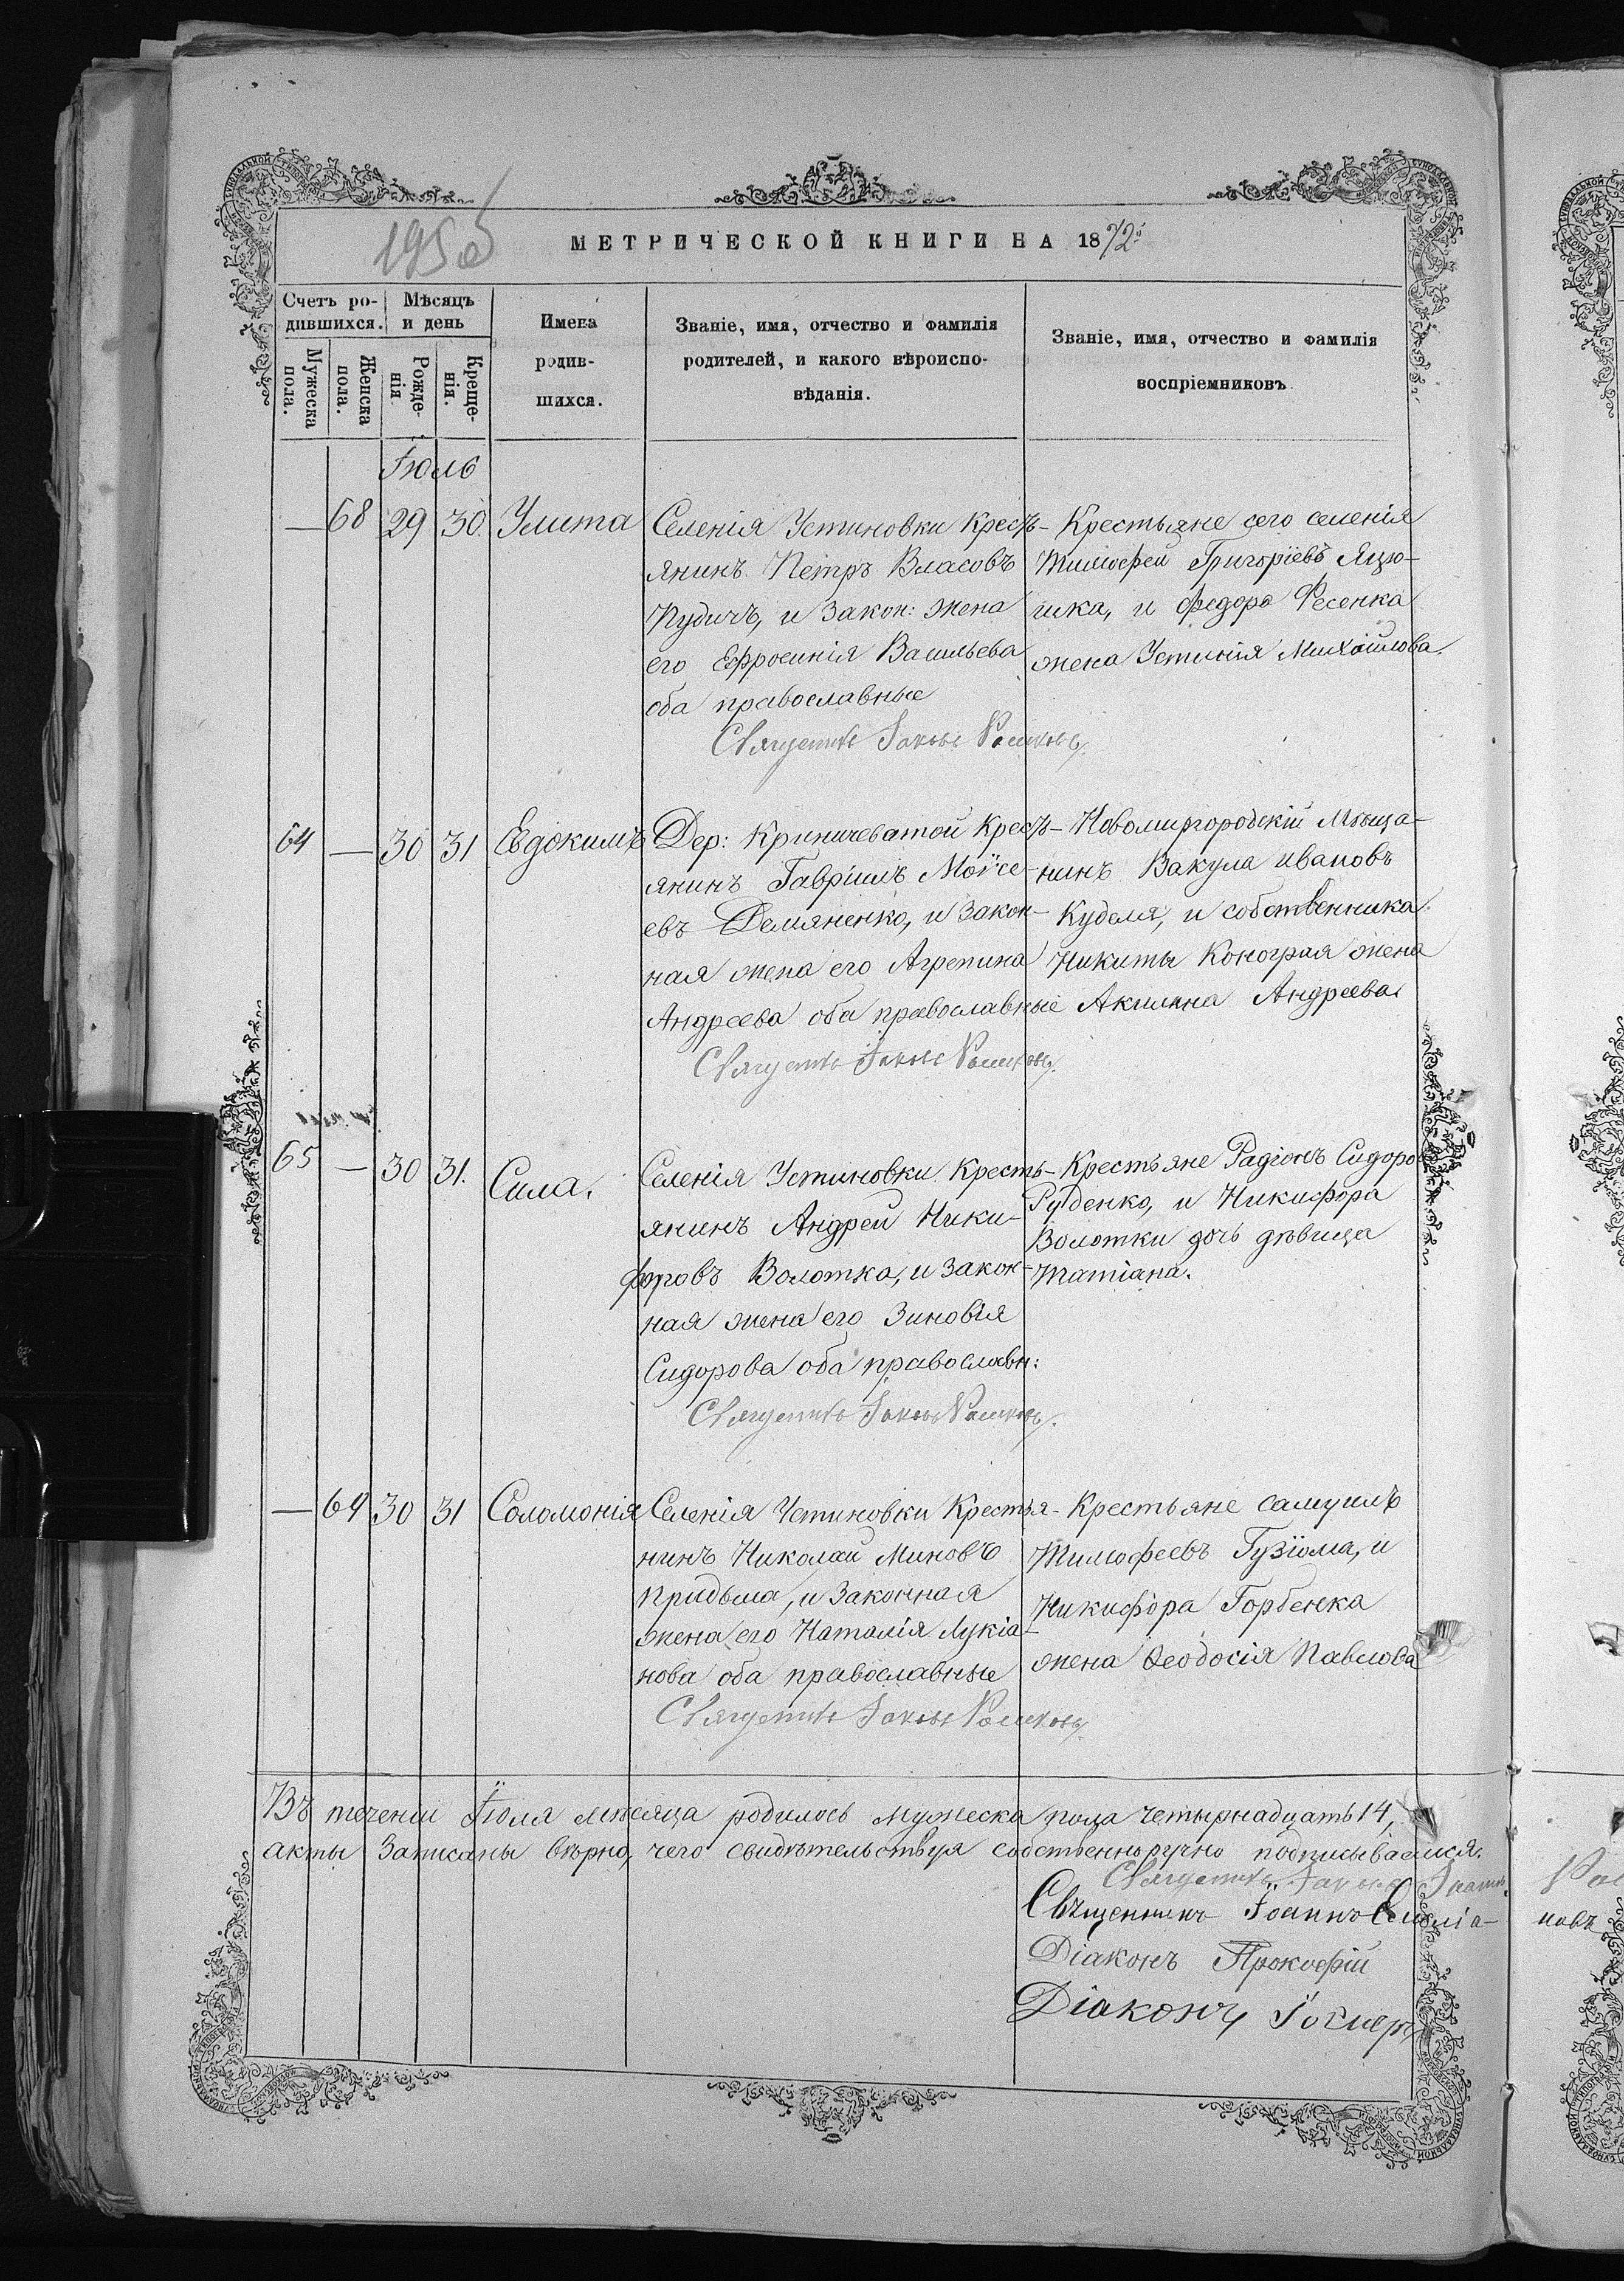 195об
МЕТРИЧЕСКОЙ КНИГИ НА 1872й
Счетъ ро-
дившихся.
Мѣсяцъ
и день
Мужеска
пола.
Женска
пола.
Рожде-
нія
Креще-
нія.
Имена
родив-
шихся.
Званіе, имя, отчество и фамилія
родителей, и какого вѣроиспо-
вѣданія.
Званіе, имя, отчество и фамилія
воспріемниковъ
Іюль
— 68 29 30. Улита
Селенія Устиновки Кресть-
янинъ Петръ Власовъ
Пудичъ, и Закон: жена
его Ефросинія Васильева
оба православные
Крестьяне сего селенія
Тимофей Григоріевъ Яцю-
шка, и Федора Фесенка
жена Устинія Михайлова.
Священникъ Іаковъ
64 — 30 31 Евдокимъ
Дер: Криничеватой Кресть-
янинъ Гавріилъ Моѵсе-
евъ Демяненко, и Закон-
ная жена его Агрепина
Андреева оба православные
Новомиргородскій Мѣща-
нинъ Вакула ивановъ
Куделя, и собственника
Никиты Коноград жена
Акилина Андреева
Священникъ Іаковъ
65 — 30 31. Сила.
Селенія Устиновки Кресть-
янинъ Андрей Ники-
форовъ Волотка, и Закон-
ная жена его Зиновія
Сидорова оба православн:
Крестьяне Радіонъ Сидоро
Руденко, и Никифора
Волотки дочь дѣвица
Татіана.
Священникъ Іаковъ
— 69 30 31 Соломонія
Селенія Устиновки Крестья-
нинъ Николай Миновъ
Придьма, и Законная
жена его Наталія Лукіа-
нова оба православные
Крестьяне Самуилъ
Тимофеевъ Гузіома, и
Никифора Горбенка
жена Ѳеодосія Павлова
Священникъ Іаковъ
Въ теченіи Іюля мѣсяца родилось мужеска пола четырнадцать 14,
акты Записаны вѣрно, чего свидѣтельствуя собственноручно подписываемся.
Священникъ Іаковъ
Священникъ Іоаннъ
новъ
Діаконъ Прокофій
Діаконъ